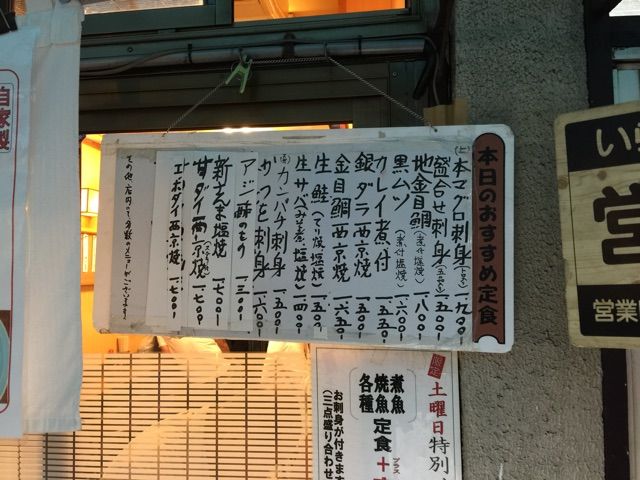 本日のおすすめ定食
(上)本マグロ刺身 一九〇〇
盛合せ刺身 一五〇〇
地金目鯛(煮付塩焼) 一八〇〇
黒ムツ(煮付塩焼) 一六〇〇
カレイ煮付 一五五〇
銀ダラ西京焼 一五〇〇
金目鯛西京焼 一六五〇
生鮭(てり焼塩焼) 一五〇〇
生サバみそ煮塩焼 一四〇〇
カンパチ刺身 一五〇〇
かつを刺身 一六〇〇
アジ酢のもの 一三〇〇
新さんま塩焼 一七〇〇
甘ダイ西京焼 一七〇〇
エボダイ西京焼 一七〇〇
その他、店内にて多数のメニューがございます
自家製
限定
土曜日特別
煮魚
焼魚定食+
各種
プラス
お刺身が付きます
(三点盛り合わせ
い
営
営業